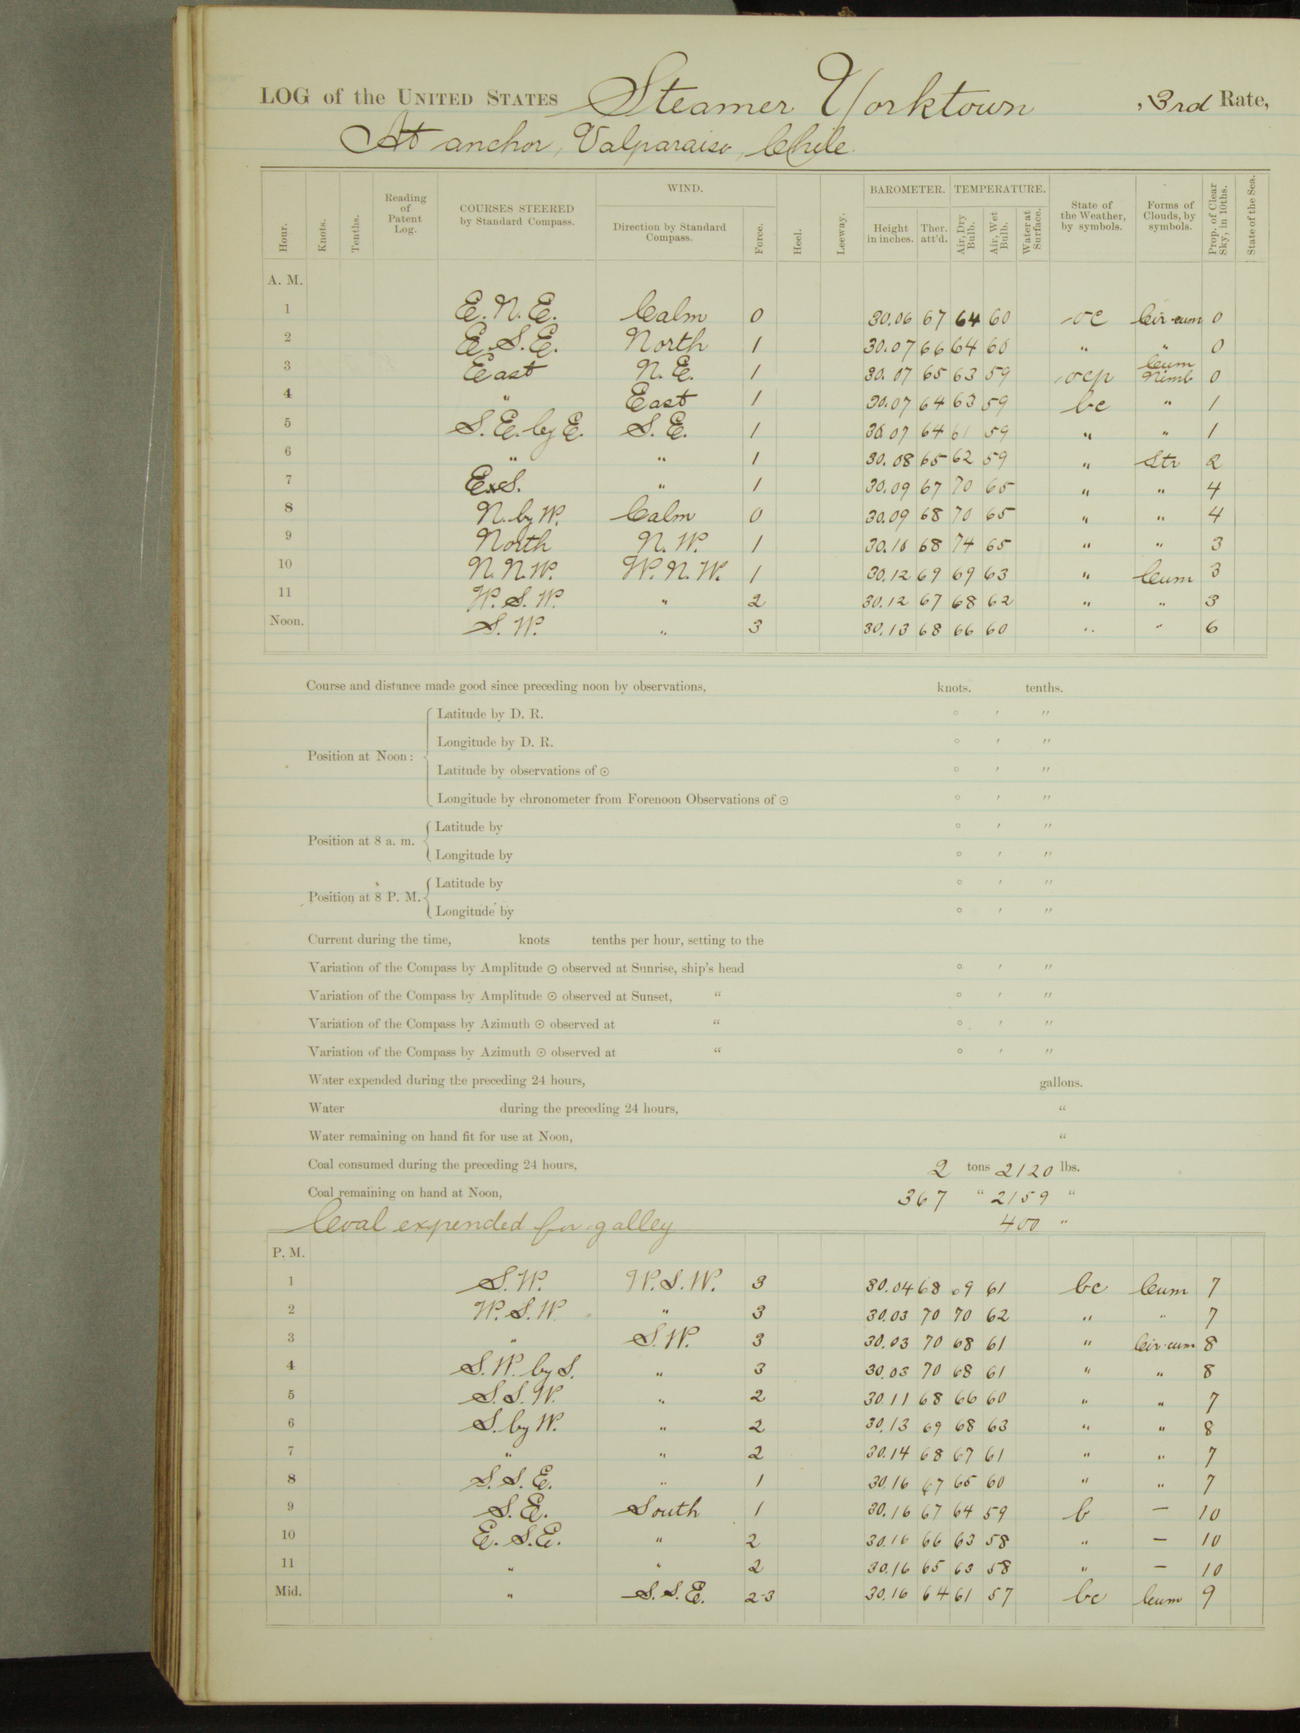 LOG of the UNITED STATES Steamer Yorktown , 3rd Rate,
At anchor, Valparaiso, Chile.
Hour. Knots. Tenths. Reading of Patent Log. COURSES STEERED by Standard Compass. WIND. Direction by Standard Compass. Force. Heel. Leeway. BAROMETER. Height in inches. Ther. att'd. TEMPERATURE. Air, Dry Bulb. Air, Wet Bulb. Water at Surface. State of the Weather, by symbols. Forms of Clouds, by symbols. Prop. of Clear Sky, in 10ths. State of the Sea.
A. M.
1 E. N. E. Calm 0 30.06 67 64 60 oc Cir-cum 0
2 E. S. E. North 1 30.07 66 64 60 " " 0
3 East N. E. 1 30.07 65 63 59 ocp Cum Nimb 0
4 " East 1 30.07 64 63 59 bc " 1
5 S. E. by E. S. E. 1 30.07 64 61 59 " " 1
6 " " 1 30.08 65 62 59 " Str 2
7 ExS. " 1 30.09 67 70 65 " " 4
8 N. by W. Calm 0 30.09 68 70 65 " " 4
9 North N. W. 1 30.10 68 74 65 " " 3
10 N. N. W. W. N. W. 1 30.12 69 69 63 " Cum 3
11 W. S. W. " 2 30.12 67 68 62 " " 3
Noon. S. W. " 3 30.13 68 66 60 " " 6
Course and distance made good since preceding noon by observations, knots. tenths.
Latitude by D. R. ° ′ ″
Longitude by D. R. ° ′ ″
Position at Noon:
Latitude by observations of ☉ ° ′ ″
Longitude by chronometer from Forenoon Observations of ☉ ° ′ ″
Latitude by ° ′ ″
Position at 8 a. m.
Longitude by ° ′ ″
Latitude by ° ′ ″
Position at 8 P. M.
Longitude by ° ′ ″
Current during the time, knots tenths per hour, setting to the
Variation of the Compass by Amplitude ☉ observed at Sunrise, ship's head ° ′ ″
Variation of the Compass by Amplitude ☉ observed at Sunset, " ° ′ ″
Variation of the Compass by Azimuth ☉ observed at " ° ′ ″
Variation of the Compass by Azimuth ☉ observed at " ° ′ ″
Water expended during the preceding 24 hours, gallons.
Water during the preceding 24 hours, "
Water remaining on hand fit for use at Noon, "
Coal consumed during the preceding 24 hours, 2 tons 2120 lbs.
Coal remaining on hand at Noon, 367 " 2159 "
Coal expended for galley 400 "
P. M.
1 S. W. W. S. W. 3 30.04 68 69 61 bc Cum 7
2 W. S. W. " 3 30.03 70 70 62 " " 7
3 " S. W. 3 30.03 70 68 61 " Cir-cum 8
4 S. W. by S. " 3 30.03 70 68 61 " " 8
5 S. S. W. " 2 30.11 68 66 60 " " 7
6 S. by W. " 2 30.13 69 68 63 " " 8
7 " " 2 30.14 68 67 61 " " 7
8 S. S. E. " 1 30.16 67 65 60 " " 7
9 S. E. South 1 30.16 67 64 59 b — 10
10 E. S. E. " 2 30.16 66 63 58 " — 10
11 " " 2 30.16 65 63 58 " — 10
Mid. " S. S. E. 2-3 30.16 64 61 57 bc Cum 9